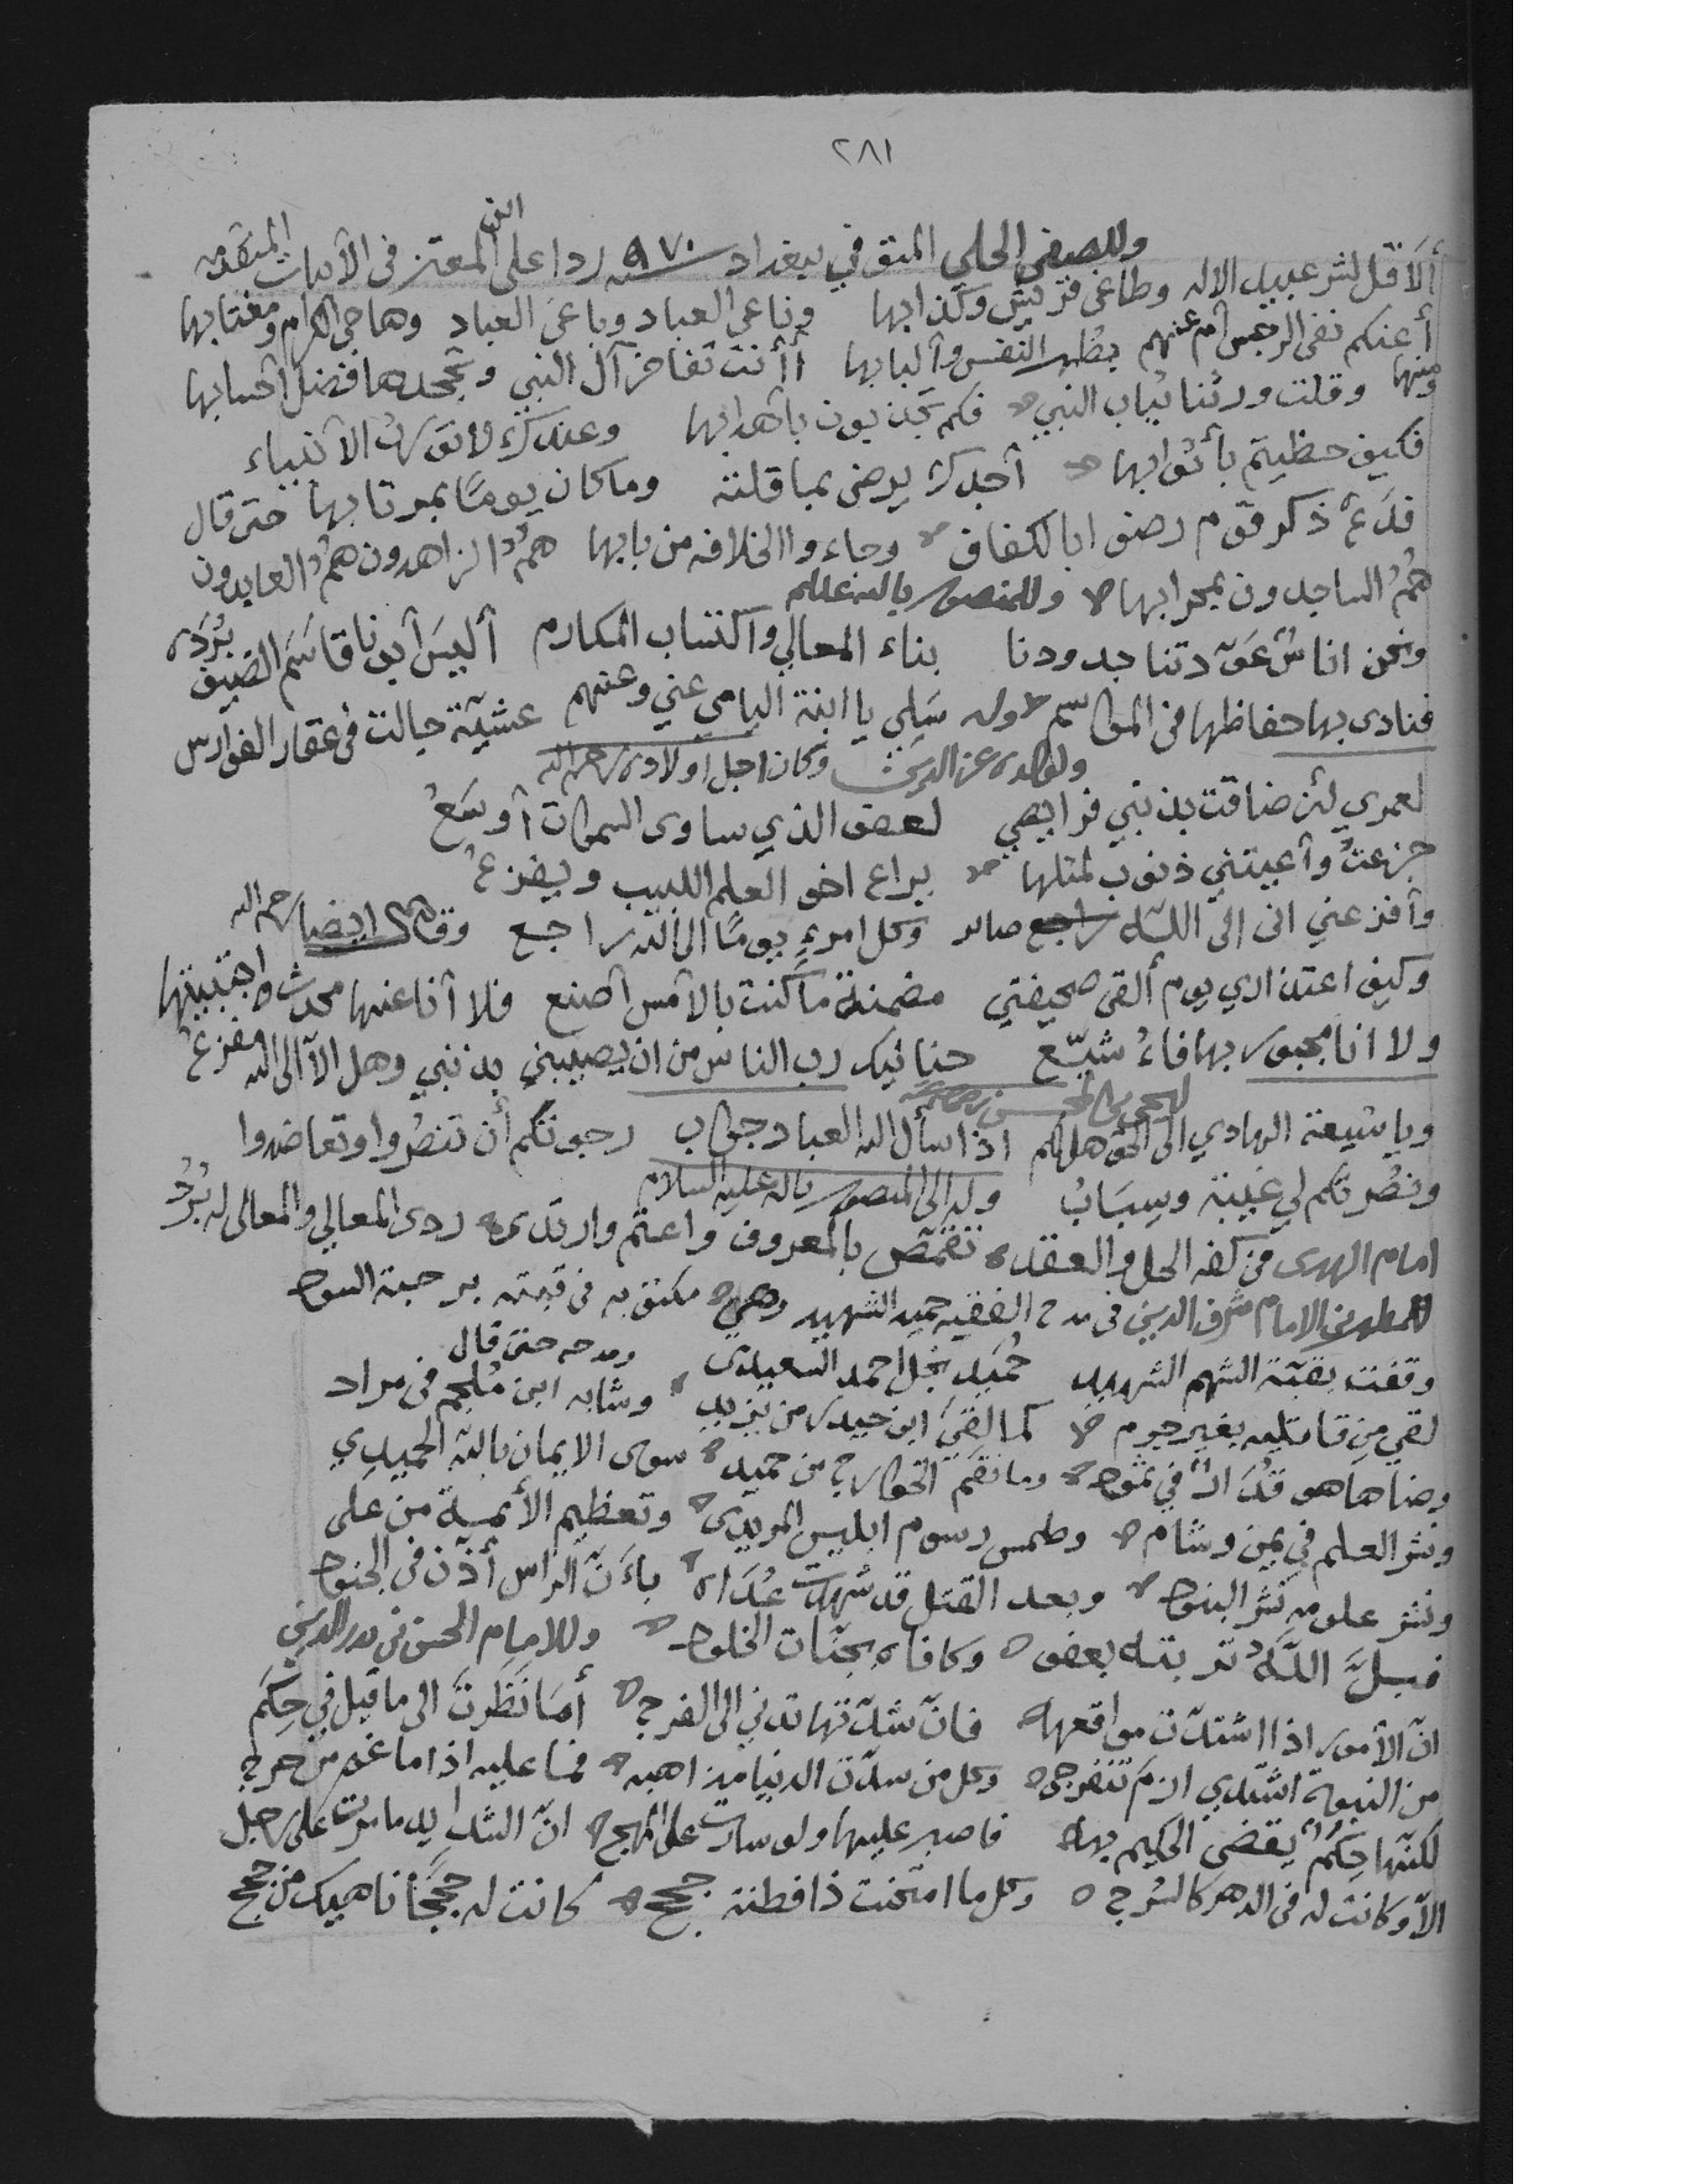 ٢٨١
وللصفي الحلي المتوفي ببغداد سنه ٩٧٠ ردا على ابن المعتز في الأبيات المتقدمه
ألا قل لشر عبيد الاله وطاغي قريش وكذابها وناعي العباد وباغي العباد وهاجي الكرام ومغتابها
أعنكم نفى الرجس أم عنهم بطهر النفس وألبابها أأنت تفاخر آل النبي وتجحدها فضل أحسابها
ومنها وقلت ورثنا ثياب النبي فكم تجذبون بأهدابها وعندك لا تورث الأنبياء
فكيف حظيتم بأثوابها أجدك يرضى بما قلته وما كان يومًا بمرتابها حتى قال
فدع ذكر قوم رضوا بالكفاف وجاءوا الخلافه من بابها همُ الزاهدون همُ العابدون
همُ الساجدون بمحرابها وللمنصور بالله عليلم
ونحن اناسٌ عوّدتنا جدودنا بناء المعالي واكتساب المكارم أليسَ أبونا قاسَم الضيفَ بُردَه
فنادى بها حفاظها في المواسم وله سَلي يا ابنة اليامي عني وعنهم عشيّة جالت في عقار الفوارس
ولولده عز الدين وكان اجل أولاده رحمه الله
لعمري لئن ضاقت بذنبي فرايصي لعفو الذي ساوى السموات أوسَعُ
جزعتُ وأعيتني ذنوب لمثلها يراع اخو العلم اللبيب ويفزعُ
وأفزعني انى الى اللّه صائر وكل امرءٍ يومًا الى الله راجع وقال ايضا رحمه الله
وكيف اعتذاري يوم ألقى صحيفتي مضمنة ما كنت بالأمس أصنع فلا أنا عنها محدث واجتنيتها
ولا انا مجبور بها فاءُشيّع حنانيك رب الناس من ان يصيبني بذنبي وهل الّا الى الله مفزعُ
ويا شيعة الهادي الى الحق هل لكم اذا سأل الله العباد جواب رجوتكم أن تنصُروا وتعاضدوا
ونصُرتكم لي غيبة وسِبَابُ وله الى المنصور بالله عليه السلام
امام الهدى من كفه الحل والعقد تقمّص بالمعروف واعتم وارتدى ردى المعالي والمعالى له بُردُ
للمطهر بن الامام شرف الدين في مدح الفقيه حميد الشهيد وهي مكتوبه في قبته برحبة السود
وقفت بقبّة الشهم الشهيد حُمَيد نجل احمد السعيدى ومدحه حتى قال
لقي من قاتليه بغير جرم كما لقِيَ ابن حيدر من يزيد وشابه ابن مُلجم في مراد
وضاها هو قُدَارٌ في ثمود وما نقم الخوارج من حميد سوى الايمان باللّه الحميدي
ونشر العلم في يمن وشام وطمس رسوم ابليس المريدى وتعظيم الأئمة من علي
ونشر علومه نشر البنود وبعد القتل قد شهدت عُدَاه بأنّ الراس أذّن في الجنود
فبلّ اللّهُ تربته بعفو وكافاه بجنّات الخلود وللامام الحسن بن بدر الدين
انّ الأمور اذا اشتدّت مواقعها فانّ شدّتها تدني الى الفرج أمَا نَظَرتَ الى ما قيل في حِكَم
من النبوة اشتدي ازم تنفرجي وكل من سدّت الدنيا مذاهبه فما عليه اذا ما غم من حرج
لكنّها حِكَمٌ يقضي الحكيم بها فاصبر عليها ولو سارت على المهج انّ الشدايد ما مرت على رجل
الّا وكانت له في الدهر كالسُرج وكل ما امتحنت ذا فطنة حجج كانت له حججًا ناهيك من حجج